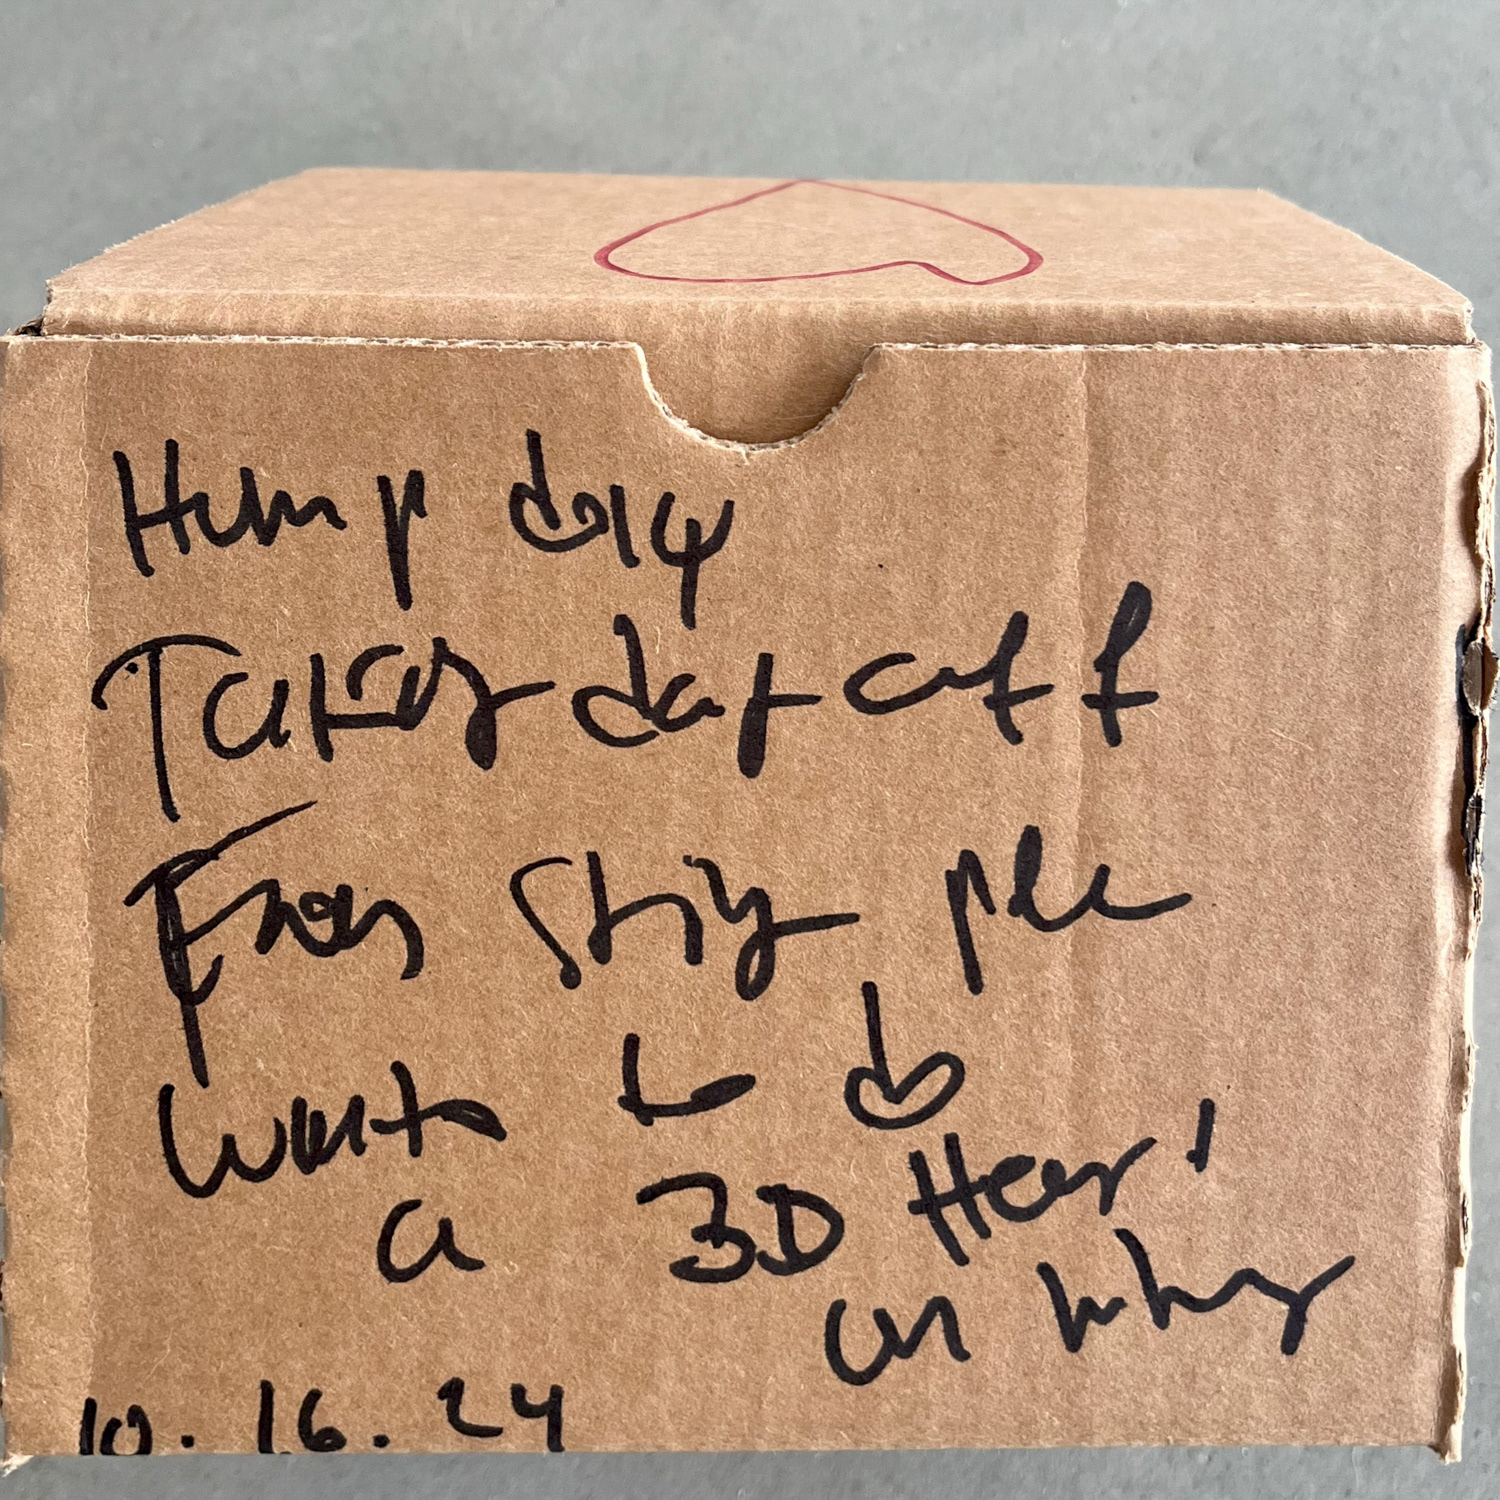 Hump day
Taking day off
From
Want to do
a 3D Heart
on why
10.16.24